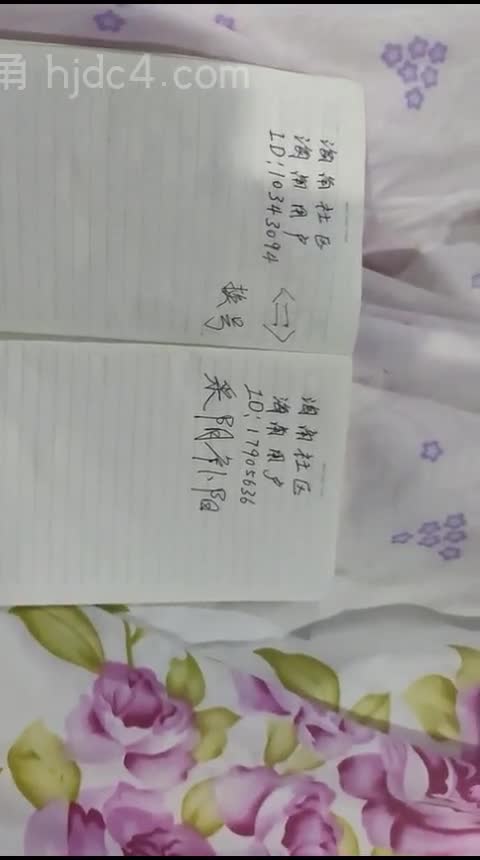 角 hjdc4.com
海角社区
海角用户
ID:10343094
换号
海角社区
海角用户
ID:17905636
采阴补阳